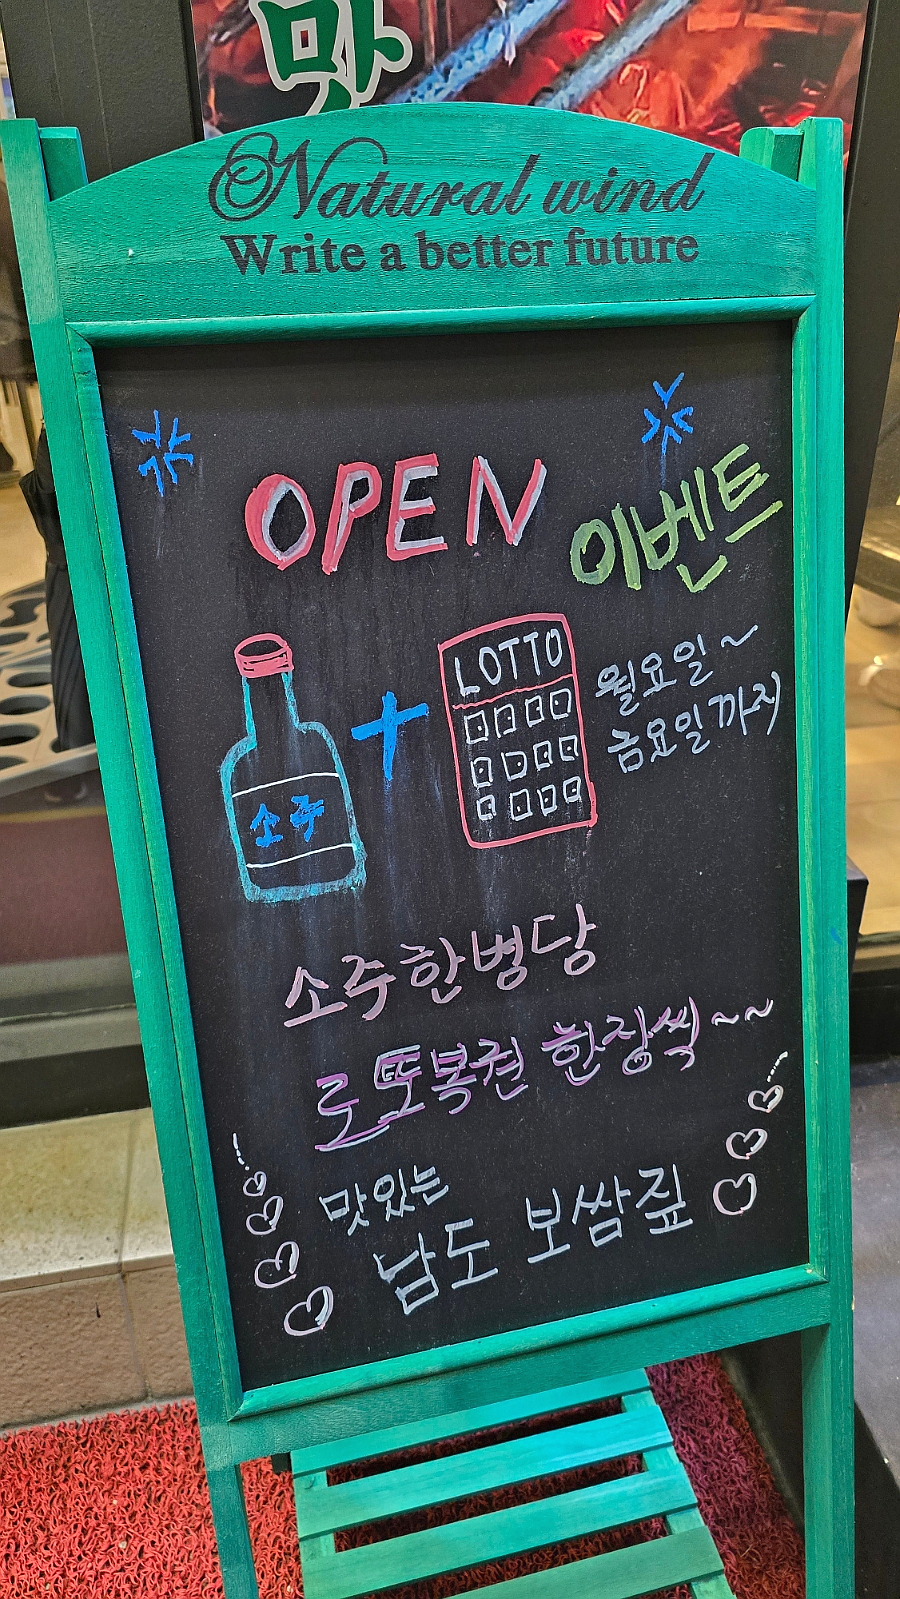 맛
Natural wind
Write a better future
OPEN 이벤트
LOTTO
월요일~
금요일까지
소주
소주한병당
로또복권 한장씩~~
맛있는
남도 보쌈짚